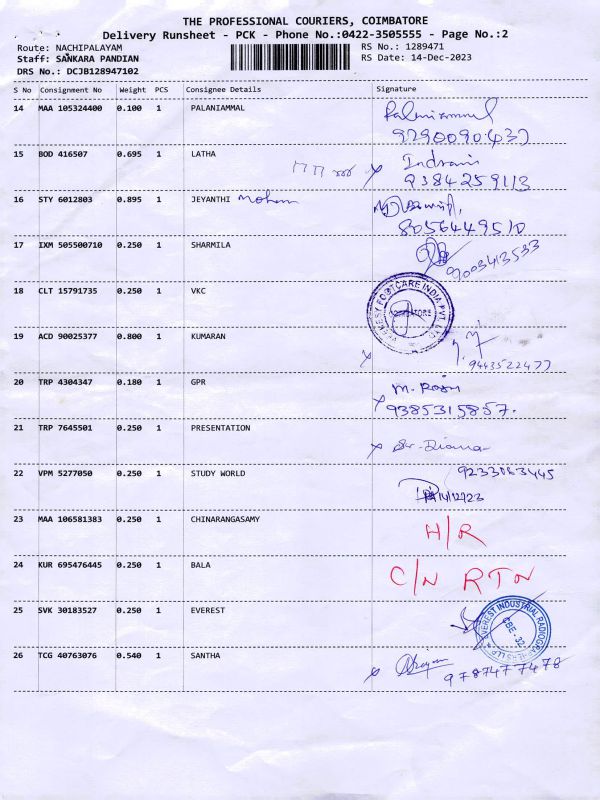 THE PROFESSIONAL COURIERS, COIMBATORE
Delivery Runsheet - PCK - Phone No.:0422-3505555 - Page No.:2
Route: NACHIPALAYAM RS No.: 1289471
Staff: SANKARA PANDIAN RS Date: 14-Dec-2023
DRS No.: DCJB128947102
S No Consignment No Weight PCS Consignee Details Signature
14 MAA 105324400 0.100 1 PALANIAMMAL Palaniammal
9290090432
15 BOD 416507 0.695 1 LATHA Indrani
9384259113
16 STY 6012803 0.895 1 JEYANTHI Mohan
8056449510
17 IXM 505500710 0.250 1 SHARMILA
9003413533
18 CLT 15791735 0.250 1 VKC FOOTCARE INDIA PVT. LTD
19 ACD 90025377 0.800 1 KUMARAN
9443522477
20 TRP 4304347 0.180 1 GPR M. Rosy
9385315857.
21 TRP 7645501 0.250 1 PRESENTATION Sr. Diana
22 VPM 5277050 0.250 1 STUDY WORLD 9233083445
14/12/23
23 MAA 106581383 0.250 1 CHINARANGASAMY H/R
24 KUR 695476445 0.250 1 BALA C/N RTN
25 SVK 30183527 0.250 1 EVEREST EVEREST INDUSTRIAL RADIOGRAPHERS LLP CBE - 32
26 TCG 40763076 0.540 1 SANTHA
9787477478